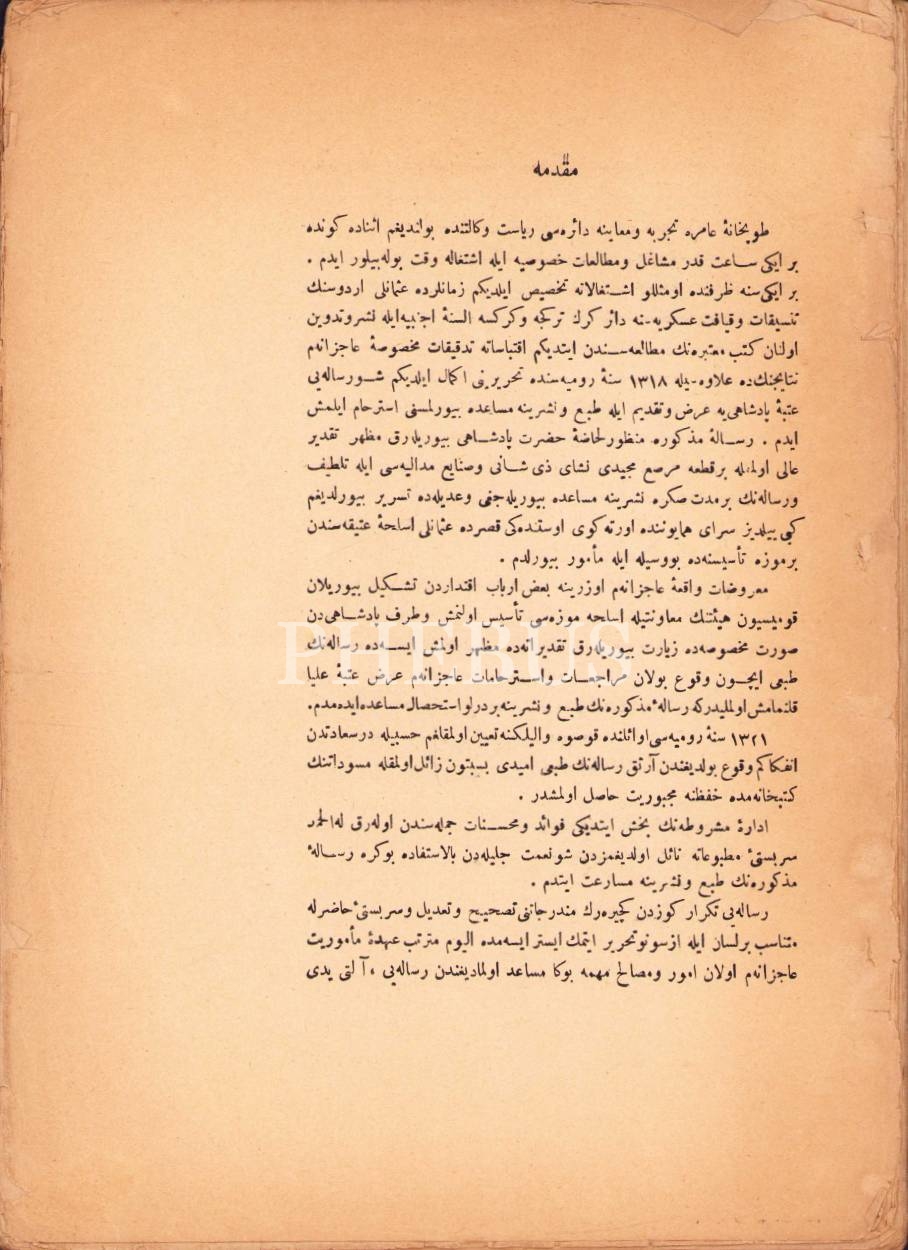 مقدمه
طوپخانهٔ عامره تجربه ومعاینه دائره‌سی ریاست وکالتنده بولندیغم اثناده کونده
بر ایکی ساعت قدر مشاغل ومطالعات خصوصیه ایله اشتغاله وقت بوله‌بیلور ایدم .
بر ایکی سنه ظرفنده اومثللو اشتغالاته تخصیص ایلدیکم زمانلرده عثمانلی اردوسنك
تنسیقات وقیافت عسکریه‌سنه دائر کرك ترکجه وکرکسه السنهٔ اجنبیه‌ایله نشر وتدوین
اولنان کتب معتبره‌نك مطالعه‌سندن ایتدیکم اقتباساته تدقیقات مخصوصهٔ عاجزانه‌م
نتایجنك‌ده علاوه‌سیله ١٣١٨ سنهٔ رومیه‌سنده تحریرینی اکمال ایلدیکم شو رساله‌یی
عتبهٔ پادشاهی‌یه عرض وتقدیم ایله طبع ونشرینه مساعده بیورلمسنی استرحام ایلمش
ایدم . رسالهٔ مذکوره منظور لحاضهٔ حضرت پادشاهی بیوریله‌رق مظهر تقدیر
عالی اولمغله برقطعه مرصع مجیدی نشای ذی شانی وصنایع مدالیه‌سی ایله تلطیف
ورساله‌نك برمدت صکره نشرینه مساعده بیوریله‌جغی وعدیله‌ده تسریر بیورلدیغم
کبی ییلدیز سرای همایوننده اورته کوی اوستنده‌کی قصرده عثمانلی اسلحهٔ عتیقه‌سندن
برموزه تأسیسنه‌ده بووسیله ایله مأمور بیورلدم .
معروضات واقعهٔ عاجزانه‌م اوزرینه بعض ارباب اقتداردن تشکیل بیوریلان
قومیسیون هیئتنك معاونتیله اسلحه موزه‌سی تأسیس اولنمش وطرف پادشاهی‌دن
صورت مخصوصه‌ده زیارت بیوریله‌رق تقدیراته‌ده مظهر اولمش ایسه‌ده رساله‌نك
طبعی ایچون وقوع بولان مراجعات واسترحامات عاجزانه‌م عرض عتبهٔ علیا
قلنمامش اولملیدرکه رسالهٔ مذکوره‌نك طبع ونشرینه بر درلو استحصال مساعده ایده‌مدم.
١٣٢١ سنهٔ رومیه‌سی اوائلنده قوصوه والیلکنه تعیین اولمقلغم حسبیله درسعادتدن
انفکاکم وقوع بولدیغندن آرتق رساله‌نك طبعی امیدی بسبتون زائل اولمقله مسوداتنك
کتبخانه‌مده حفظنه مجبوریت حاصل اولمشدر .
ادارهٔ مشروطه‌نك بخش ایتدیکی فوائد ومحسنات جمله‌سندن اوله‌رق له‌الحمد
سربستیٔ مطبوعاته نائل اولدیغمزدن شو نعمت جلیله‌دن بالاستفاده بوکره رسالهٔ
مذکوره‌نك طبع ونشرینه مسارعت ایتدم .
رساله‌یی تکرار کوزدن کچیره‌رك مندرجاتنی تصحیح وتعدیل وسربستیٔ حاضرله
متناسب برلسان ایله ازسرنو تحریر ایتمك ایستر ایسه‌مده الیوم مترتب عهدهٔ مأموریت
عاجزانه‌م اولان امور ومصالح مهمه بوکا مساعد اولمادیغندن رساله‌یی ، آلتی یدی
PHEBUS